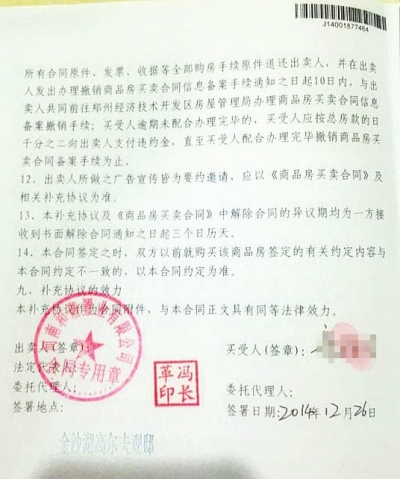 J14001877484
所有合同原件、发票、收据等全部购房手续原件退还出卖人，并在出卖
人发出办理撤销商品房买卖合同信息备案手续通知之日起10日内，与出
卖人共同前往郑州经济技术开发区房屋管理局办理商品房买卖合同信息
备案撤销手续；买受人逾期未配合办理完毕的，买受人应按总房款的日
千分之二向出卖人支付违约金，直至买受人配合办理完毕撤销商品房买
卖合同备案手续为止。
12、出卖人所做之广告宣传皆为要约邀请，应以《商品房买卖合同》及
相关补充协议为准。
13、本补充协议及《商品房买卖合同》中解除合同的异议期均为一方接
收到书面解除合同通知之日起三个日历天。
14、本合同签定之时，双方以前就购买该商品房签定的有关约定内容与
本合同约定不一致的，以本合同约定为准。
九、补充协议的效力
本补充协议作为合同附件，与本合同正文具有同等法律效力。
出卖人(签章)：
买受人（签章）：
法定代表人：
委托代理人：
委托代理人：
签署地点：
签署日期：2014年12月26日
置业有限公司
合同专用章
冯长革印
金沙湖高尔夫观邸